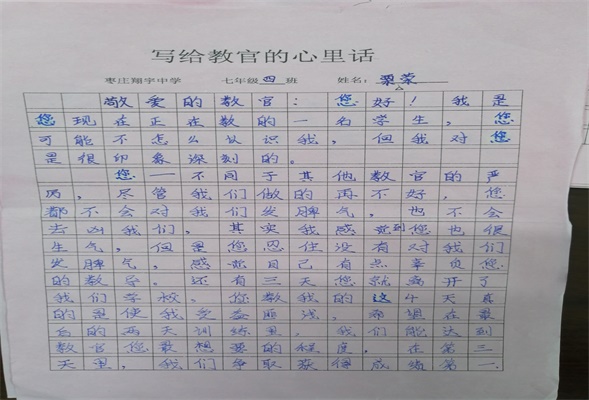 写给教官的心里话
枣庄翔宇中学 七年级四班 姓名：栗荣
敬爱的教官：您好！我是
您现在正在教的一名学生，您
可能不怎么认识我，但我对您
是很印象深刻的。
您一不同于其他教官的严
厉，尽管我们做的再不好，您
都不会对我们发脾气，也不会
去凶我们，其实我感觉到您也很
生气，但是您忍住没有对我们
发脾气，感觉自己有点辜负您
的教导。还有三天您就离开了
我们学校，您教我的这4天真
的是使我受益匪浅，希望在最
后的两天训练里，我们能达到
教官您最想要的程度，在第三
天里，我们争取获得成绩第一